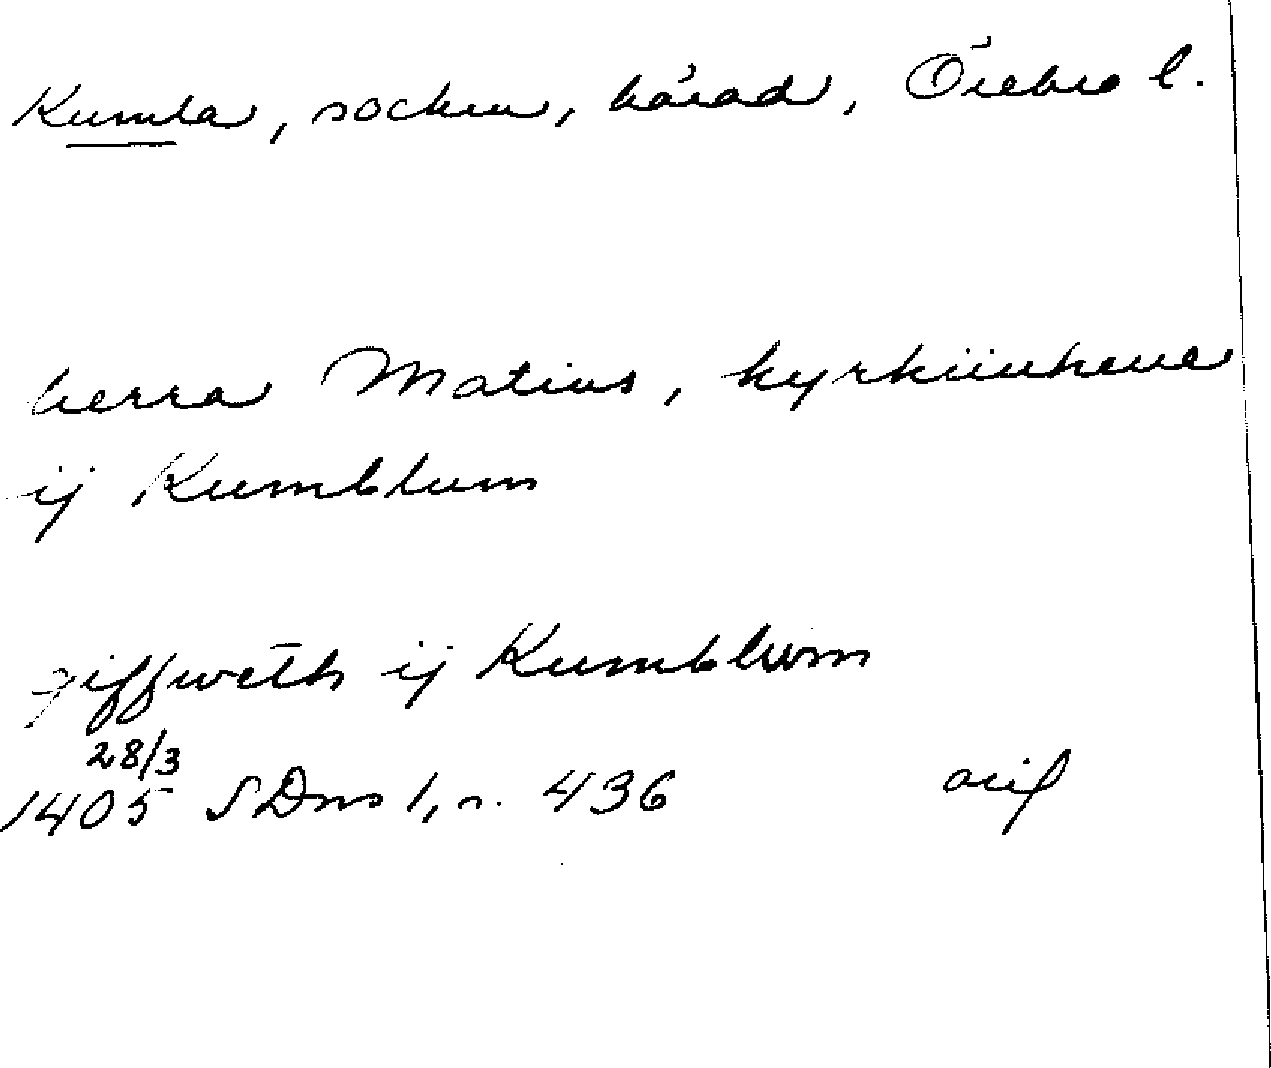 Kumla, socken, härad, Örebro l.
herra Matius, kyrkiinhene
ij Kumblum
giffweth ij Kumblum
28/3
1405 SDns 1, n. 436 orif